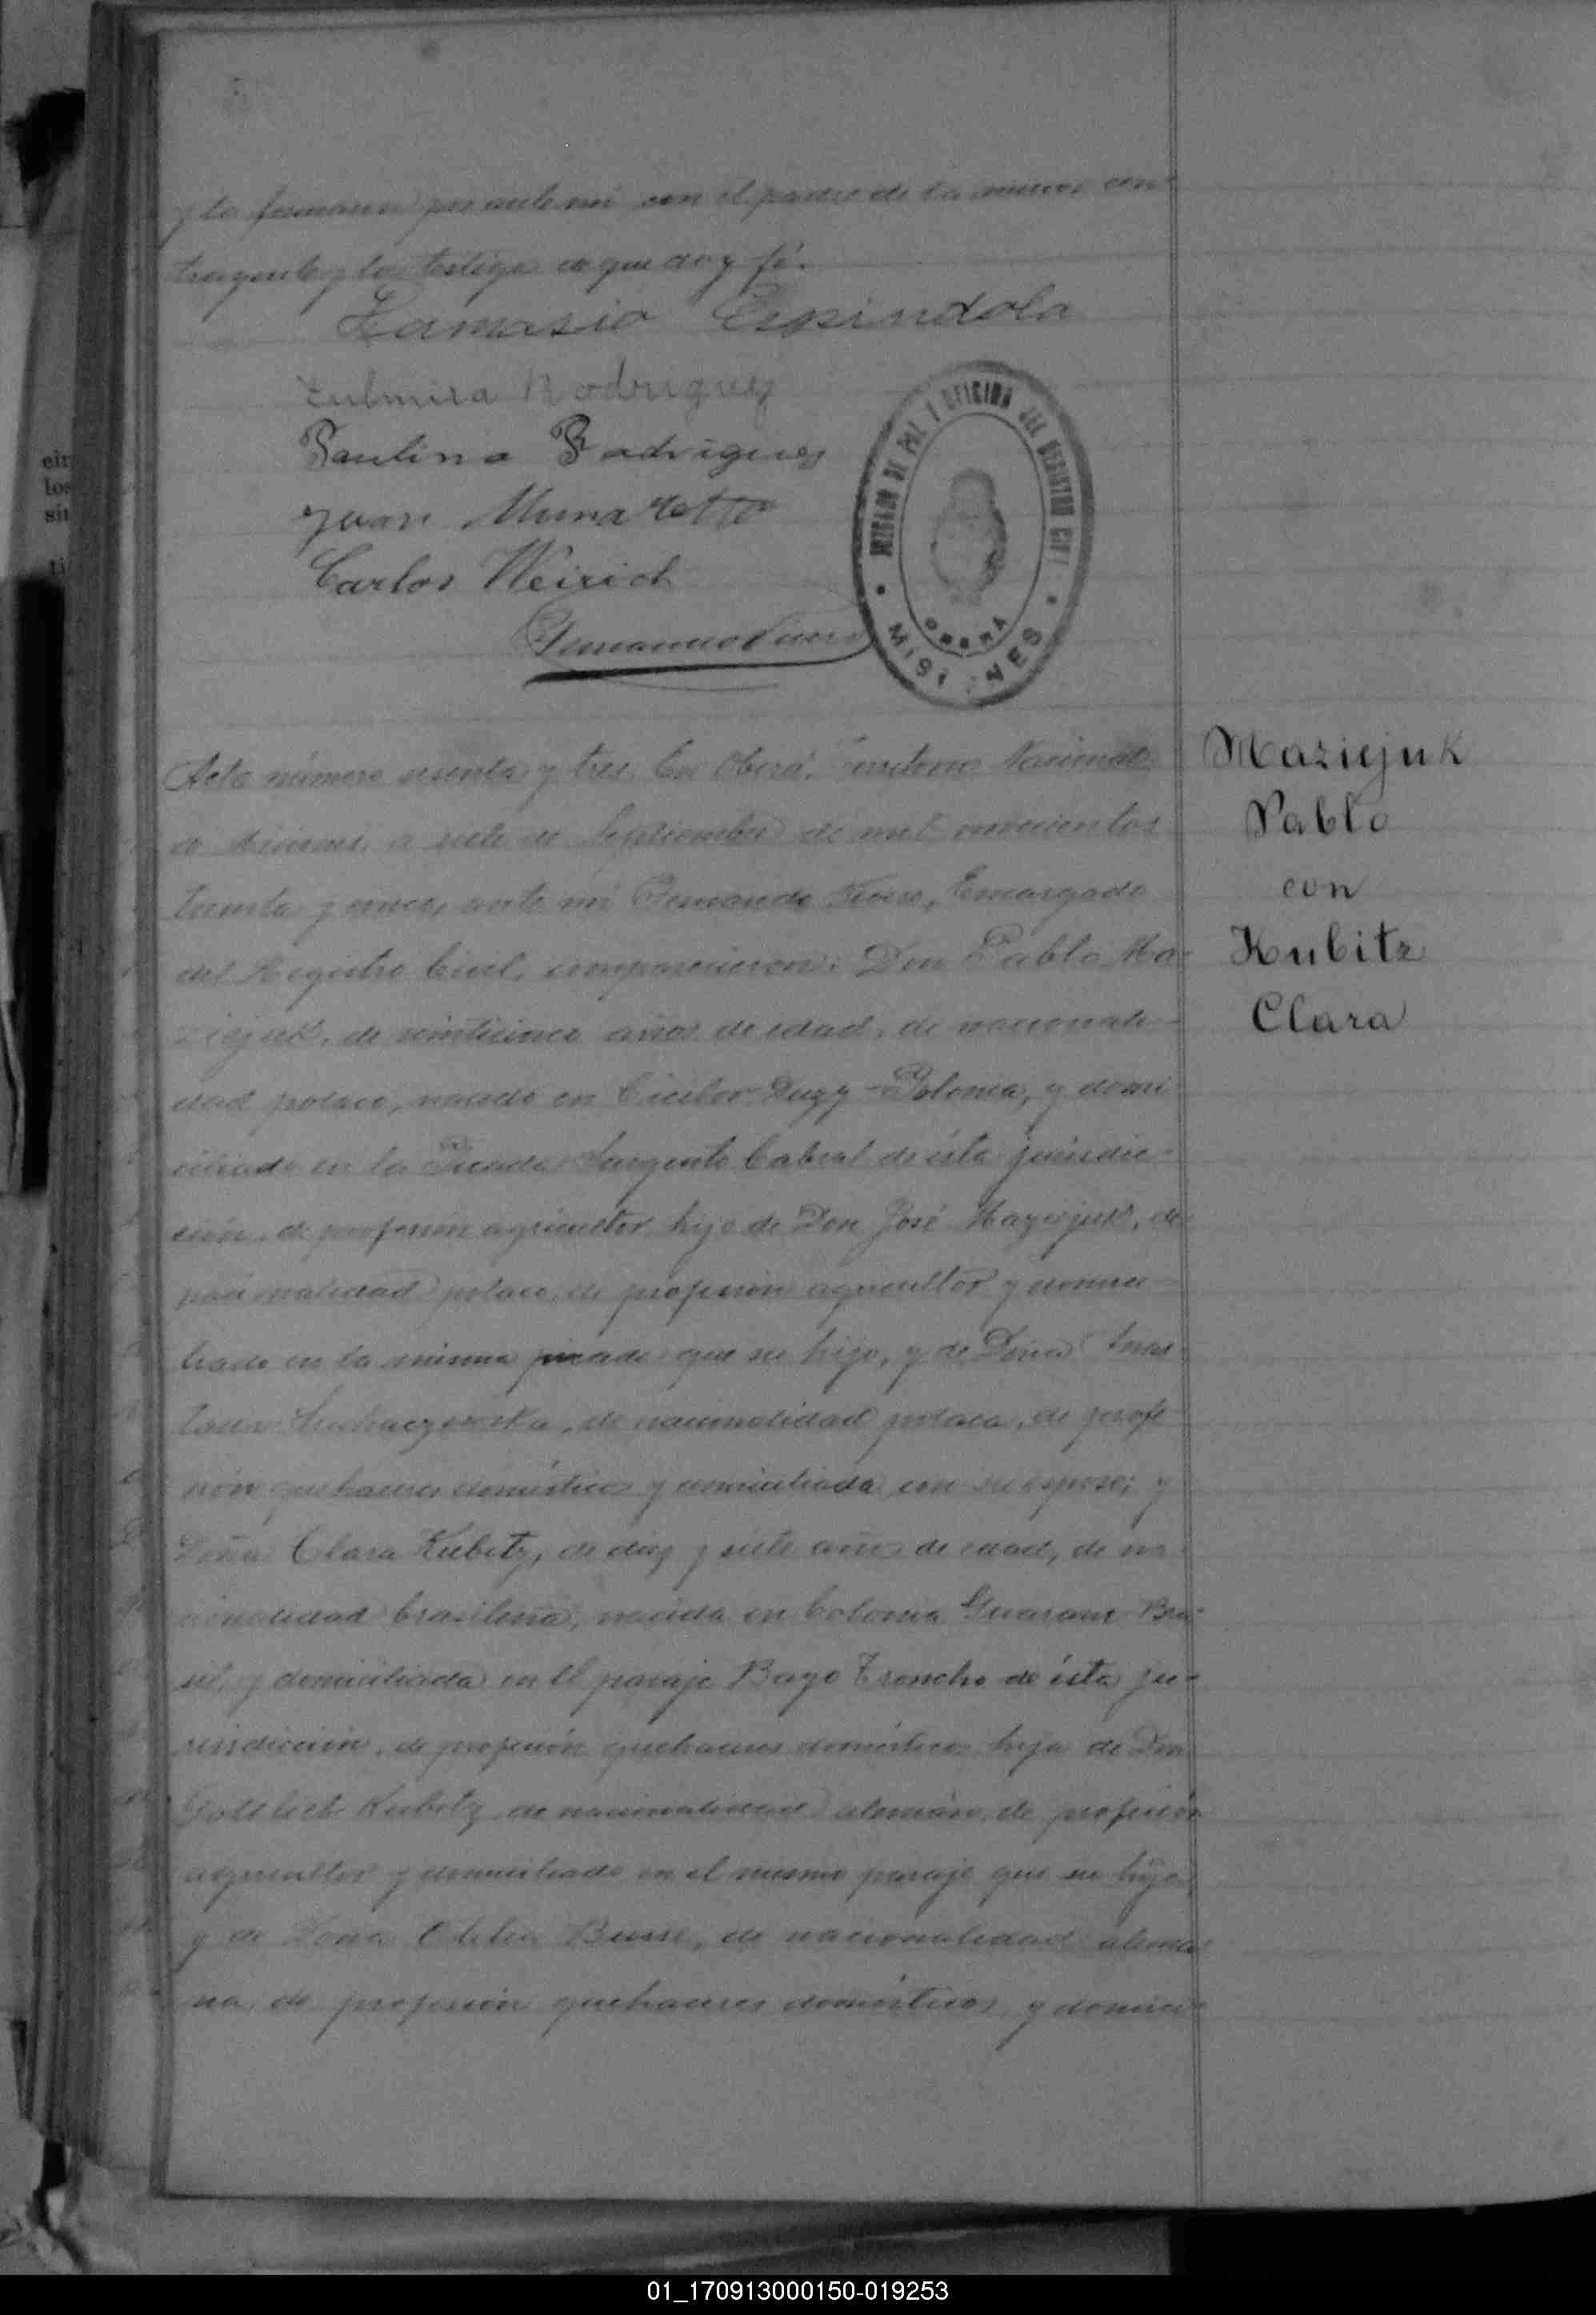 y la firmaron por ante mí con el padre de la menor con-
trayente y los testigos de que doy fé.
Damasio Espindola
Zulmira Rodriguez
Paulino Rodrigues
Juan Munaretto
Carlos Weirich
JUZGADO DE PAZ Y OFICINA DEL REGISTRO CIVIL
OBERÁ
MISIONES
Acta número sesenta y tres. En Oberá, Territorio Nacional
de Misiones, a siete de Septiembre de mil novecientos
treinta y cinco, ante mí Fernando Rivero, Encargado
del Registro Civil, comparecieron: Don Pablo Ma-
ziejuk, de veinticinco años de edad, de nacionali-
dad polaco, nacido en Duzy-Polonia, y domi-
ciliado en la Picada Sargento Cabral de ésta jurisdic-
ción, de profesión agricultor, hijo de Don José Maziejuk, de
nacionalidad polaco, de profesión agricultor y domici-
liado en la misma picada que su hijo, y de Doña Anas-
tacia, de nacionalidad polaca, de profe-
sión quehaceres domésticos y domiciliada con su esposo; y
Doña Clara Kubitz, de diez y siete años de edad, de na-
cionalidad brasileña, nacida en Colonia Guaraní-Bra-
sil, y domiciliada en el paraje Bayo Troncho de ésta ju-
risdicción, de profesión quehaceres domésticos, hija de Don
Gottlieb Kubitz, de nacionalidad alemán, de profesión
agricultor y domiciliado en el mismo paraje que su hija,
y de Doña Busse, de nacionalidad alema-
na, de profesión quehaceres domésticos y domici-
Maziejuk
Pablo
con
Kubitz
Clara
01_170913000150-019253